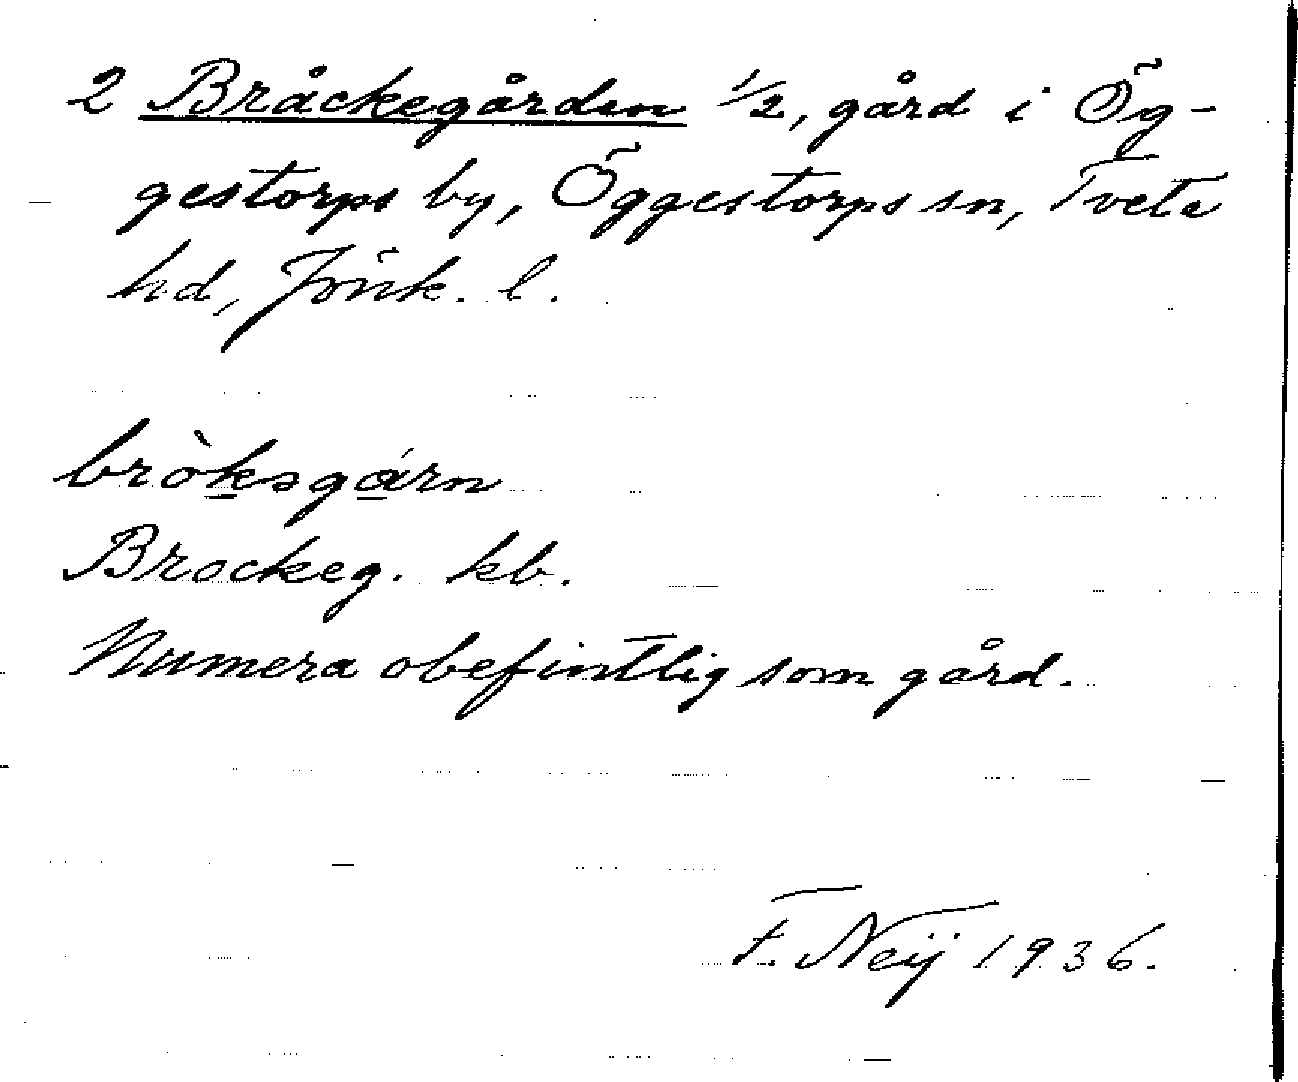 2 Bråckegården 1/2, gård i Ög-
gestorps by, Öggestorps sn, Tveta
hd, Jönk. l.
bròkəgárn
Brockeg. kb.
Numera obefintlig som gård.
F. Neij 1936.